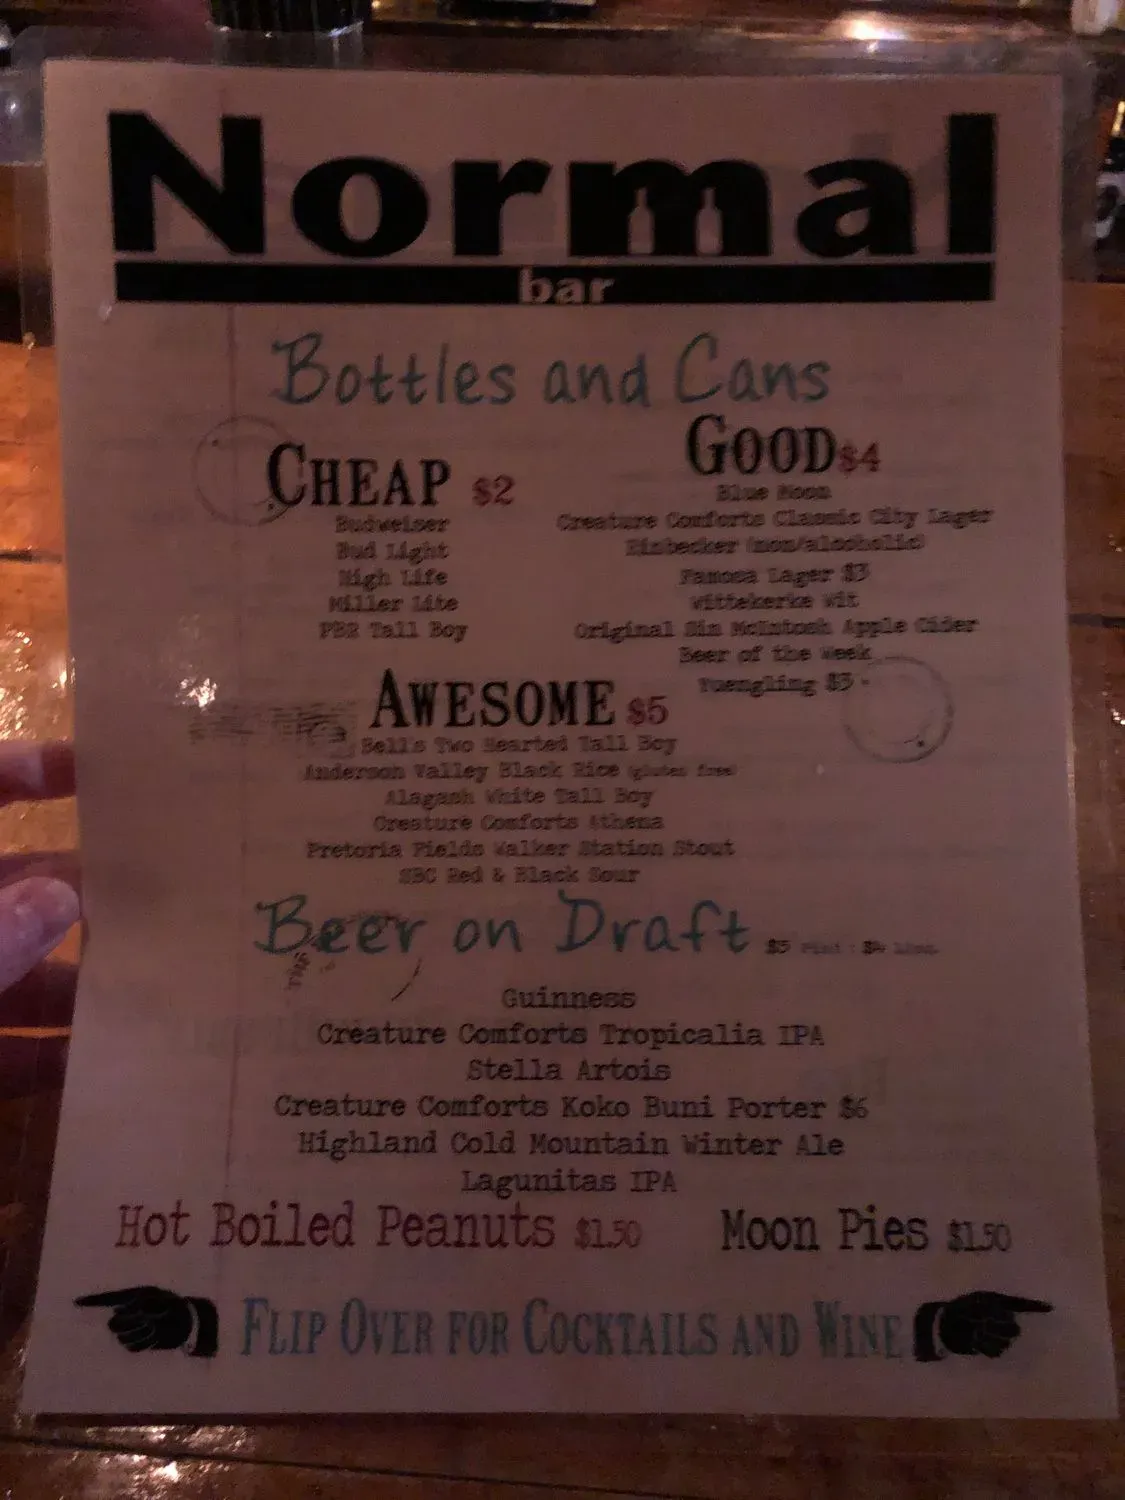 Normal
bar
Bottles and Cans
CHEAP $2
Budweiser
Bud Light
High Life
Miller Lite
PBR Tall Boy
GOOD $4
Blue Moon
Creature Comforts Classic City Lager
Einbecker (non/alcoholic)
Famosa Lager $3
Wittekerke Wit
Original Sin McIntosh Apple Cider
Beer of the Week
Yuengling $3
AWESOME $5
Bell's Two Hearted Tall Boy
Anderson Valley Black Rice (gluten free)
Alagash White Tall Boy
Creature Comforts Athena
Pretoria Fields Walker Station Stout
SBC Red & Black Sour
Beer on Draft $5 Pint
Guinness
Creature Comforts Tropicalia IPA
Stella Artois
Creature Comforts Koko Buni Porter $6
Highland Cold Mountain Winter Ale
Lagunitas IPA
Hot Boiled Peanuts $1.50
Moon Pies $1.50
FLIP OVER FOR COCKTAILS AND WINE